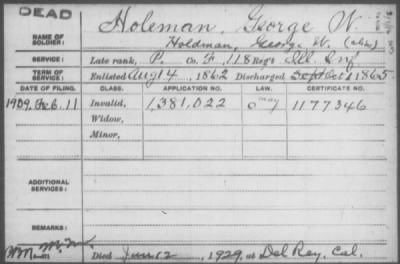 DEAD
Holeman, George W.
NAME OF SOLDIER:
Holdman, George W. (alias)
SERVICE:
Late rank, P. Co. F, 118 Reg't Ill. Inf.
TERM OF SERVICE:
Enlisted Aug 14, 1862 Discharged Oct 1 1865.
DATE OF FILING. CLASS. APPLICATION NO. LAW. CERTIFICATE NO.
1909. Feb. 11 Invalid, 1,381,022 1177346
Widow,
Minor,
ADDITIONAL SERVICES:
REMARKS:
Died June 2, 1929, at Del Rey, Cal.